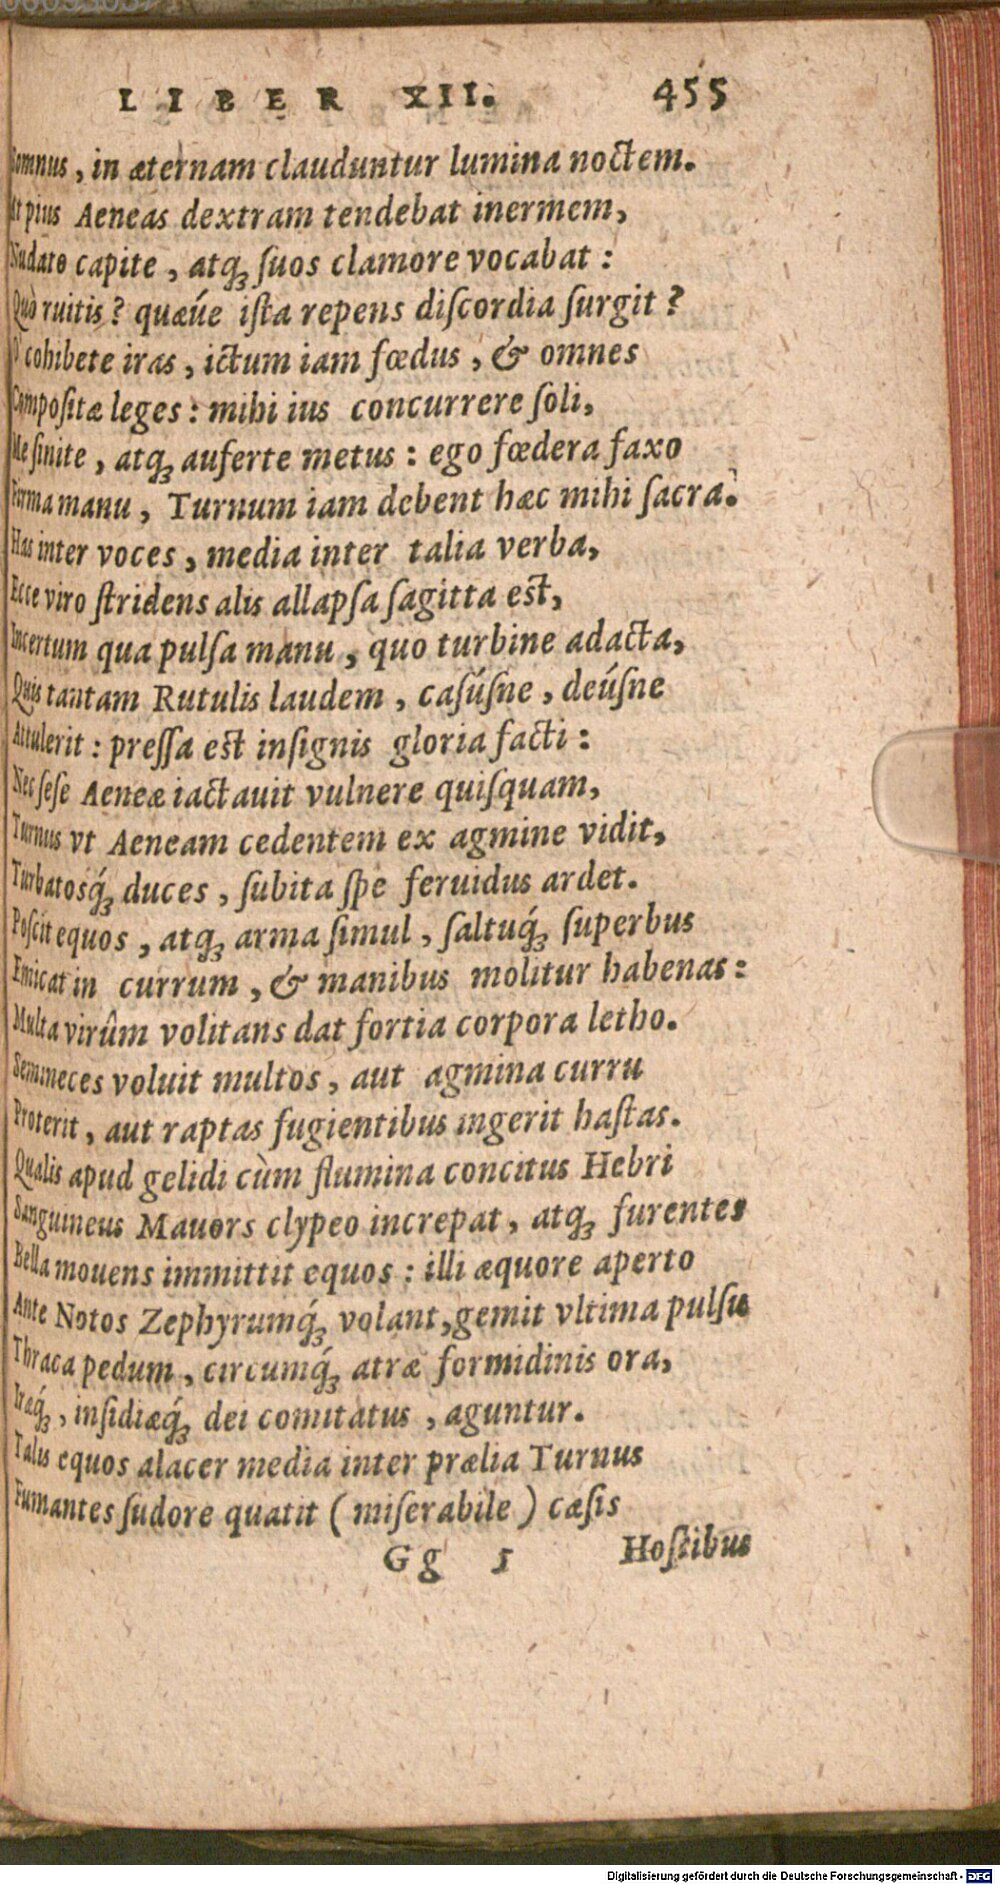 LIBER XII. 455
Somnus, in æternam clauduntur lumina noctem.
At pius Aeneas dextram tendebat inermem,
Nudato capite, atqꝫ ſuos clamore vocabat:
Quò ruitis? quæúe iſta repens diſcordia ſurgit?
O' cohibete iras, ictum iam fœdus, & omnes
Compoſitæ leges: mihi ius concurrere ſoli,
Me ſinite, atqꝫ auferte metus: ego fœdera faxo
Firma manu, Turnum iam debent hæc mihi ſacra.
Has inter voces, media inter talia verba,
Ecce viro ſtridens alis allapſa ſagitta eſt,
Incertum qua pulſa manu, quo turbine adacta,
Quis tantam Rutulis laudem, caſúſne, deúſne
Attulerit: preſſa eſt inſignis gloria facti:
Nec ſeſe Aeneæ iactauit vulnere quiſquam,
Turnus vt Aeneam cedentem ex agmine vidit,
Turbatosq́ꝫ duces, ſubita ſpe feruidus ardet.
Poſcit equos, atqꝫ arma ſimul, ſaltuq́ꝫ ſuperbus
Emicat in currum, & manibus molitur habenas:
Multa virûm volitans dat fortia corpora letho.
Semineces voluit multos, aut agmina curru
Proterit, aut raptas fugientibus ingerit haſtas.
Qualis apud gelidi cùm flumina concitus Hebri
Sanguineus Mauors clypeo increpat, atqꝫ furentes
Bella mouens immittit equos: illi æquore aperto
Ante Notos Zephyrumq́ꝫ volant, gemit vltima pulſu
Thraca pedum, circumq́ꝫ atræ formidinis ora,
Iræq́ꝫ, inſidiæq́ꝫ dei comitatus, aguntur.
Talis equos alacer media inter prælia Turnus
Fumantes ſudore quatit (miſerabile) cæſis
Gg 5 Hoſtibus
Digitalisierung gefördert durch die Deutsche Forschungsgemeinschaft - DFG